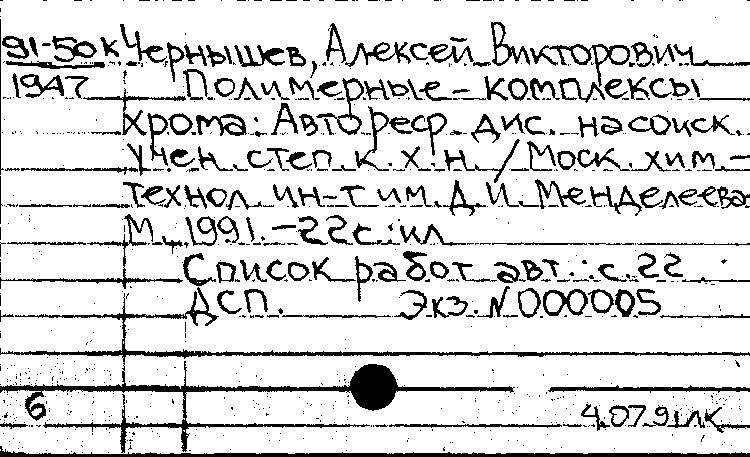 91-50к Чернышев, Алексей Викторович
1947 Полимерные - комплексы
хрома: Автореф. дис. на соиск.
учен. степ. к. х. н. / Моск. хим.-
технол. ин-т им. Д. И. Менделеева-
М., 1991.-22с.:ил
Список работ авт.: с. 22.
ДСП. Экз. N 000005
6 4.07.91 ЛК